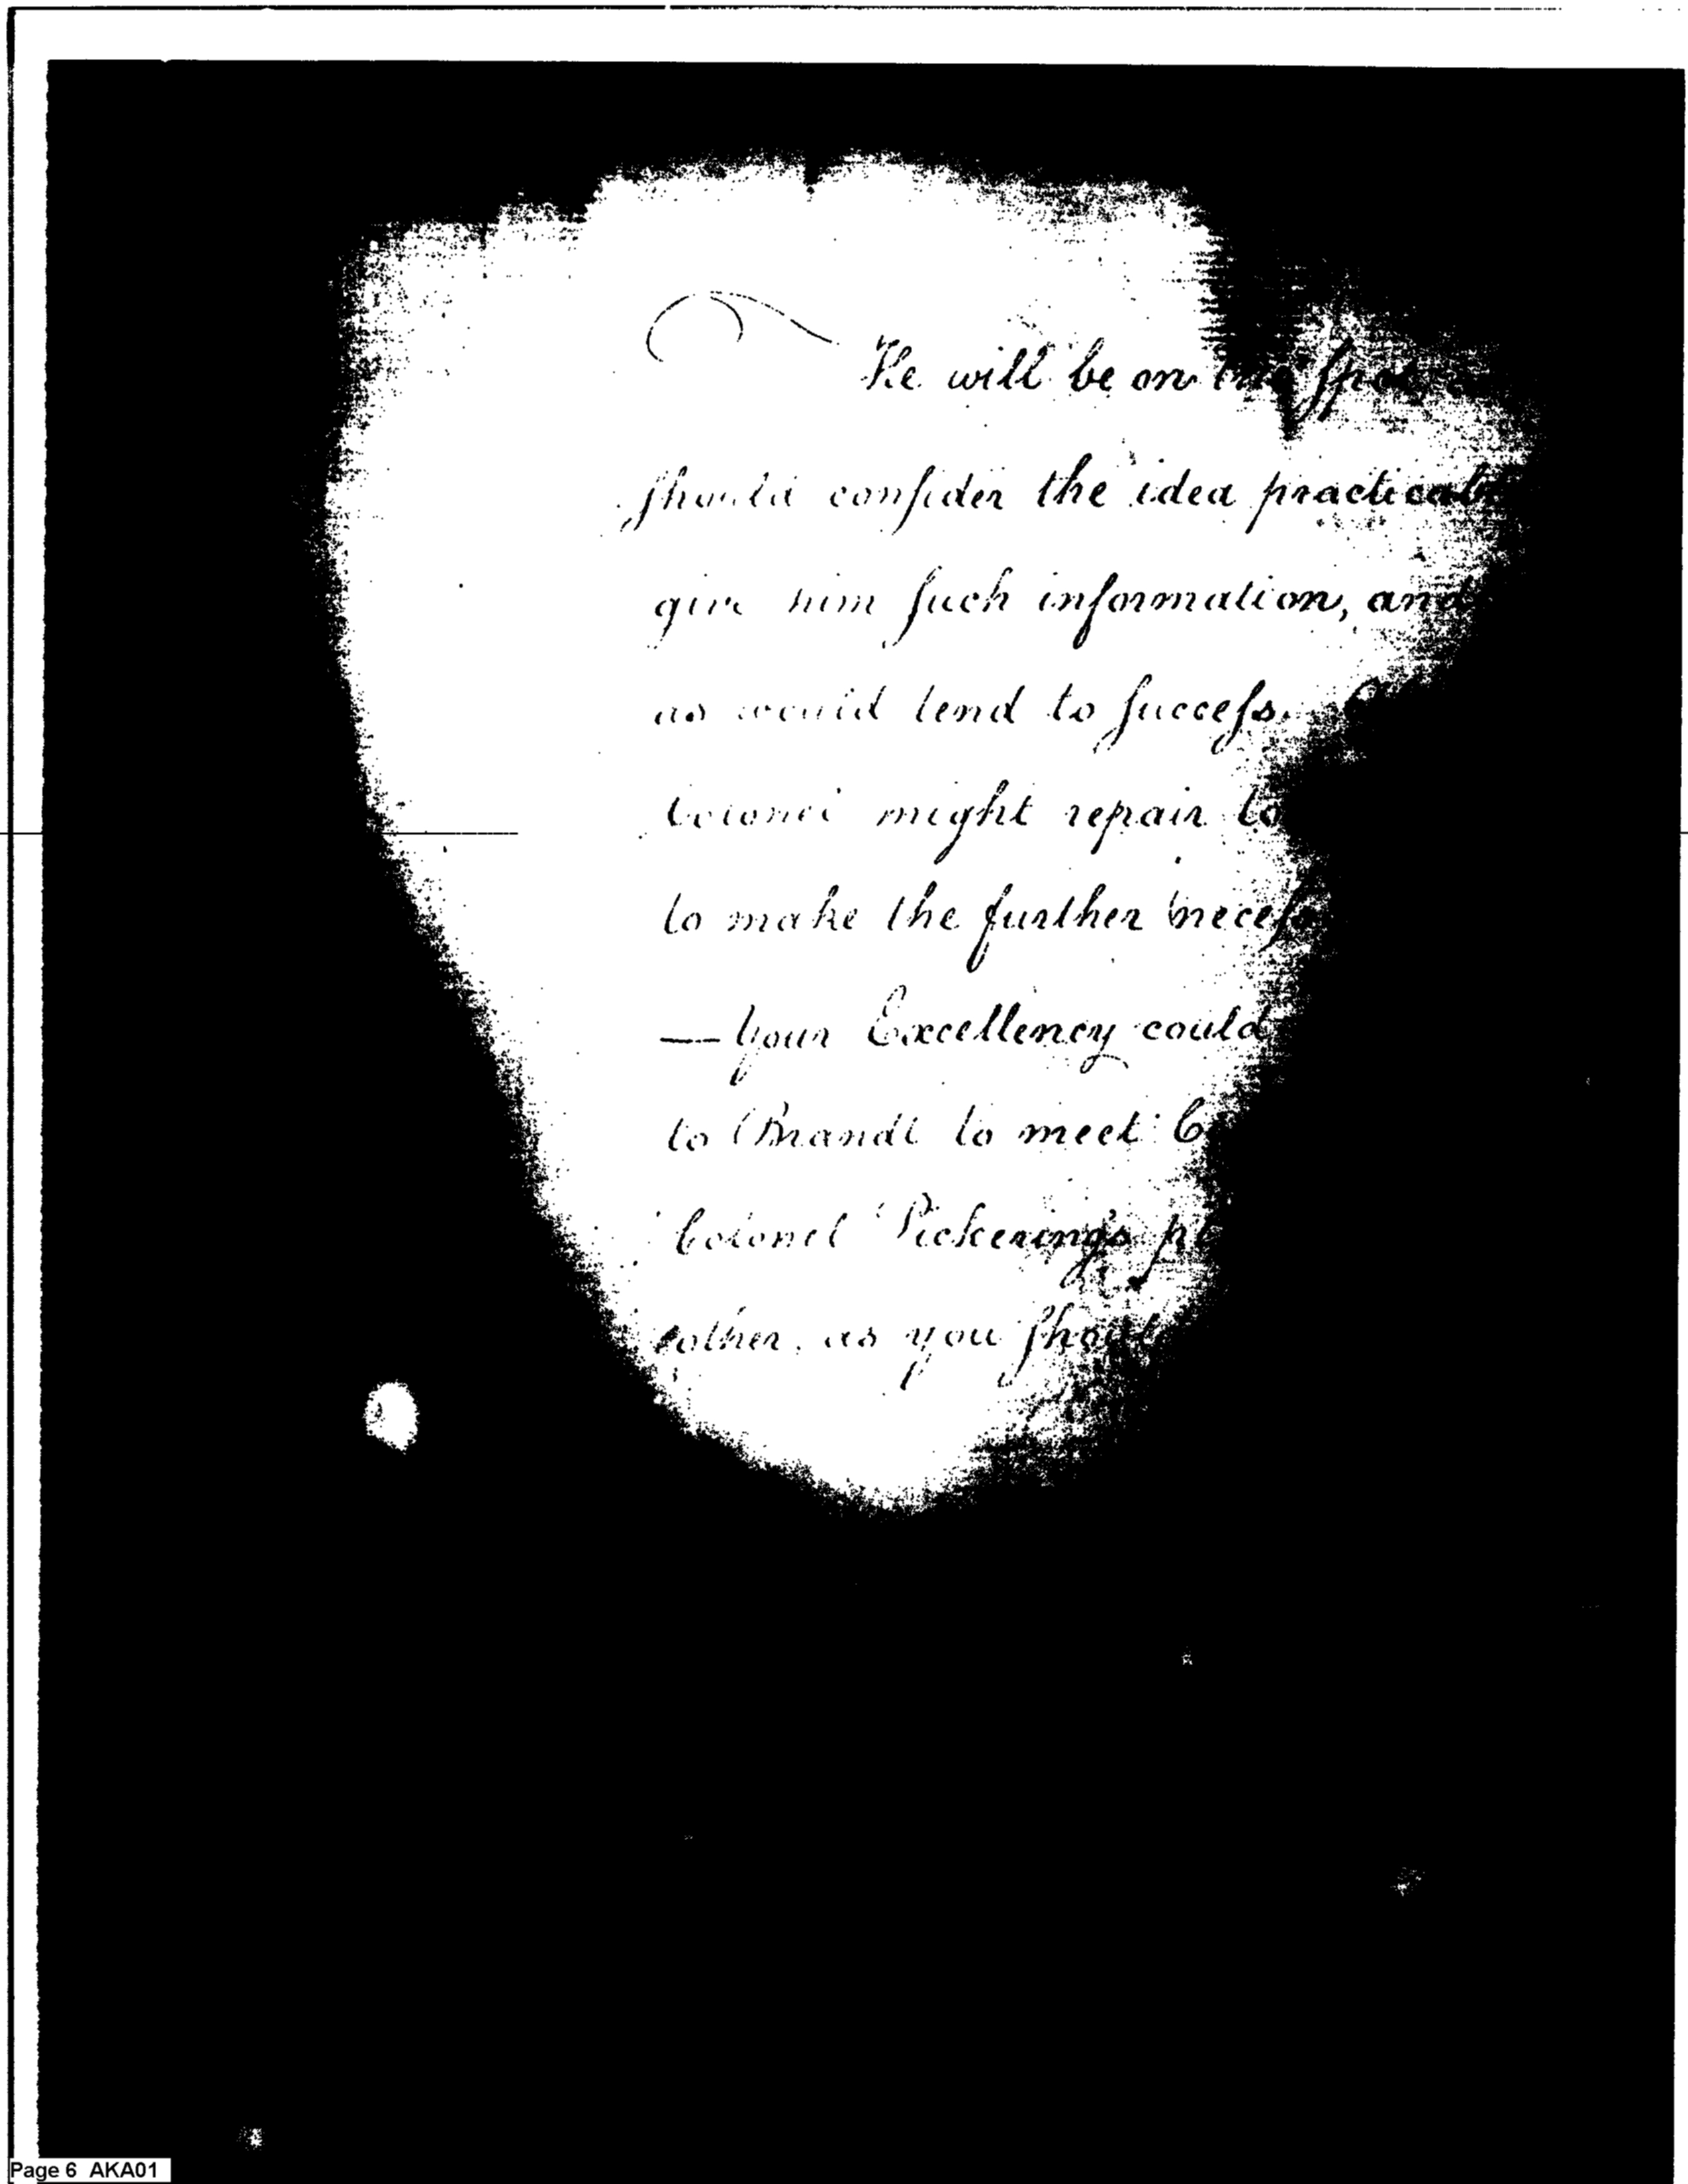 He will be on the spot
should consider the idea practicab
give him such information, and
as would tend to success.
Colonel might repair to
to make the further necess
— Your Excellency could
to Brandt to meet C
Colonel Pickering's p
other, as you should
Page 6 AKA01